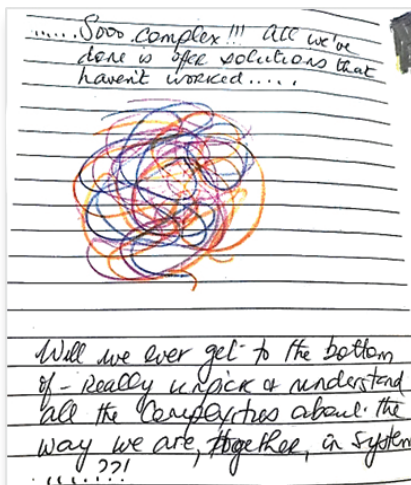 ......Sooo complex!!! All we've
done is offer solutions that
haven't worked.....
Will we ever get to the bottom
of - really unpick & understand
all the complexities about the
way we are, together, in system
......??!